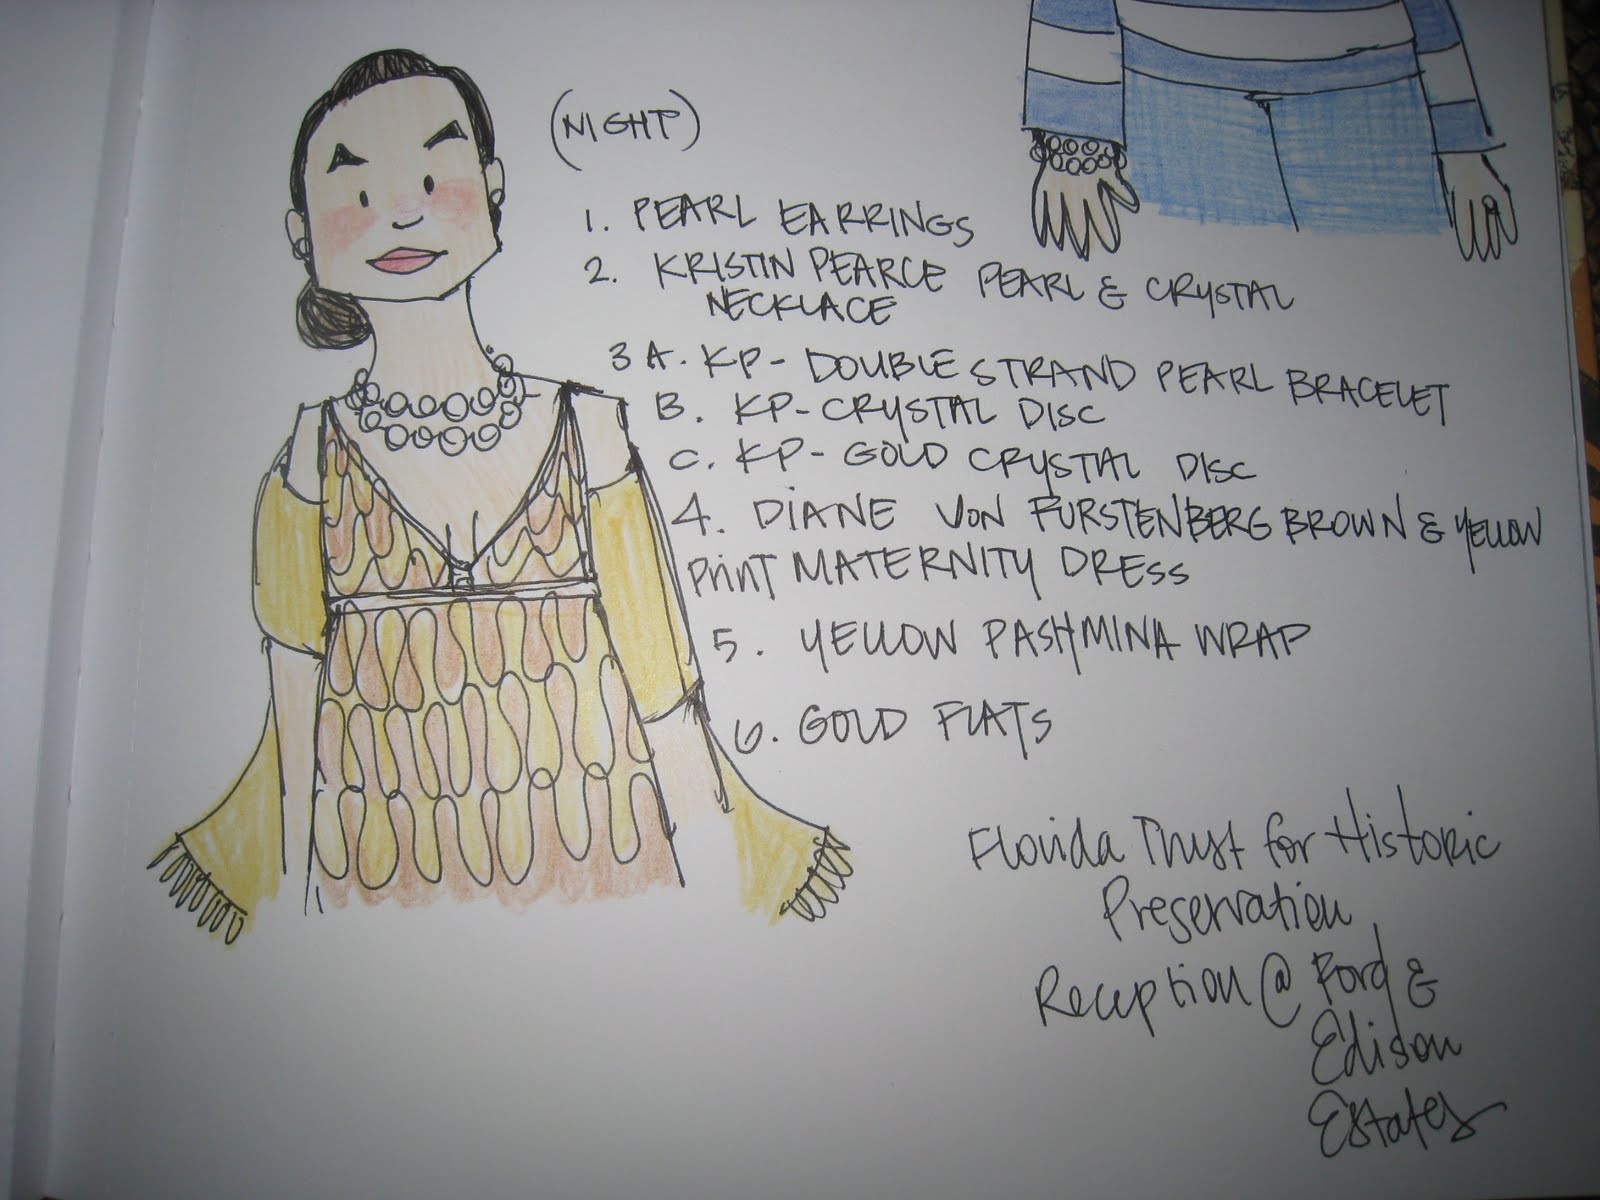 (NIGHT)
1. PEARL EARRINGS
2. KRISTIN PEARCE PEARL & CRYSTAL
NECKLACE
3 A. KP- DOUBLE STRAND PEARL BRACELET
B. KP- CRYSTAL DISC
C. KP- GOLD CRYSTAL DISC
4. DIANE VON FURSTENBERG BROWN & YELLOW
Print MATERNITY DRESS
5. YELLOW PASHMINA WRAP
6. GOLD FLATS
Florida Trust for Historic
Preservation
Reception @ Ford &
Edison
Estates